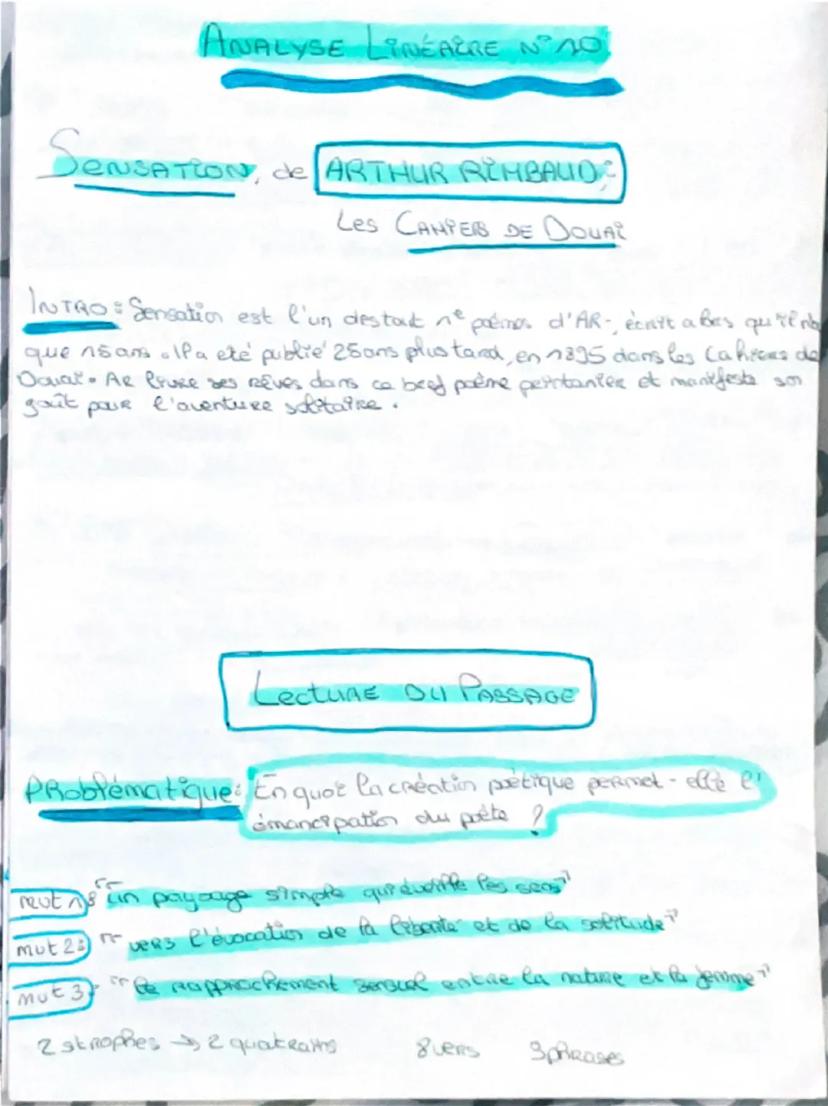 ANALYSE LINÉAIRE N°10
SENSATION, de ARTHUR RIMBAUD;
Les CAHIERS DE DOUAI
INTRO: Sensation est l'un des tout 1e poèmes d'AR-, écrit alors qu'il n'a
que 15 ans. Il a été publié 25 ans plus tard, en 1895 dans les Cahiers de
Douai. AR livre ses rêves dans ce bref poème printanier et manifeste son
goût pour l'aventure solitaire.
LECTURE DU PASSAGE
PROblématique: En quoi la création poétique permet-elle l'
émancipation du poète ?
mvt 1: "Un paysage simple qui éveille les sens"
mvt 2: "vers l'évocation de la liberté et de la solitude"
mvt 3: "Le rapprochement sensuel entre la nature et la femme"
2 strophes → 2 quatrains 8 vers 3 phrases